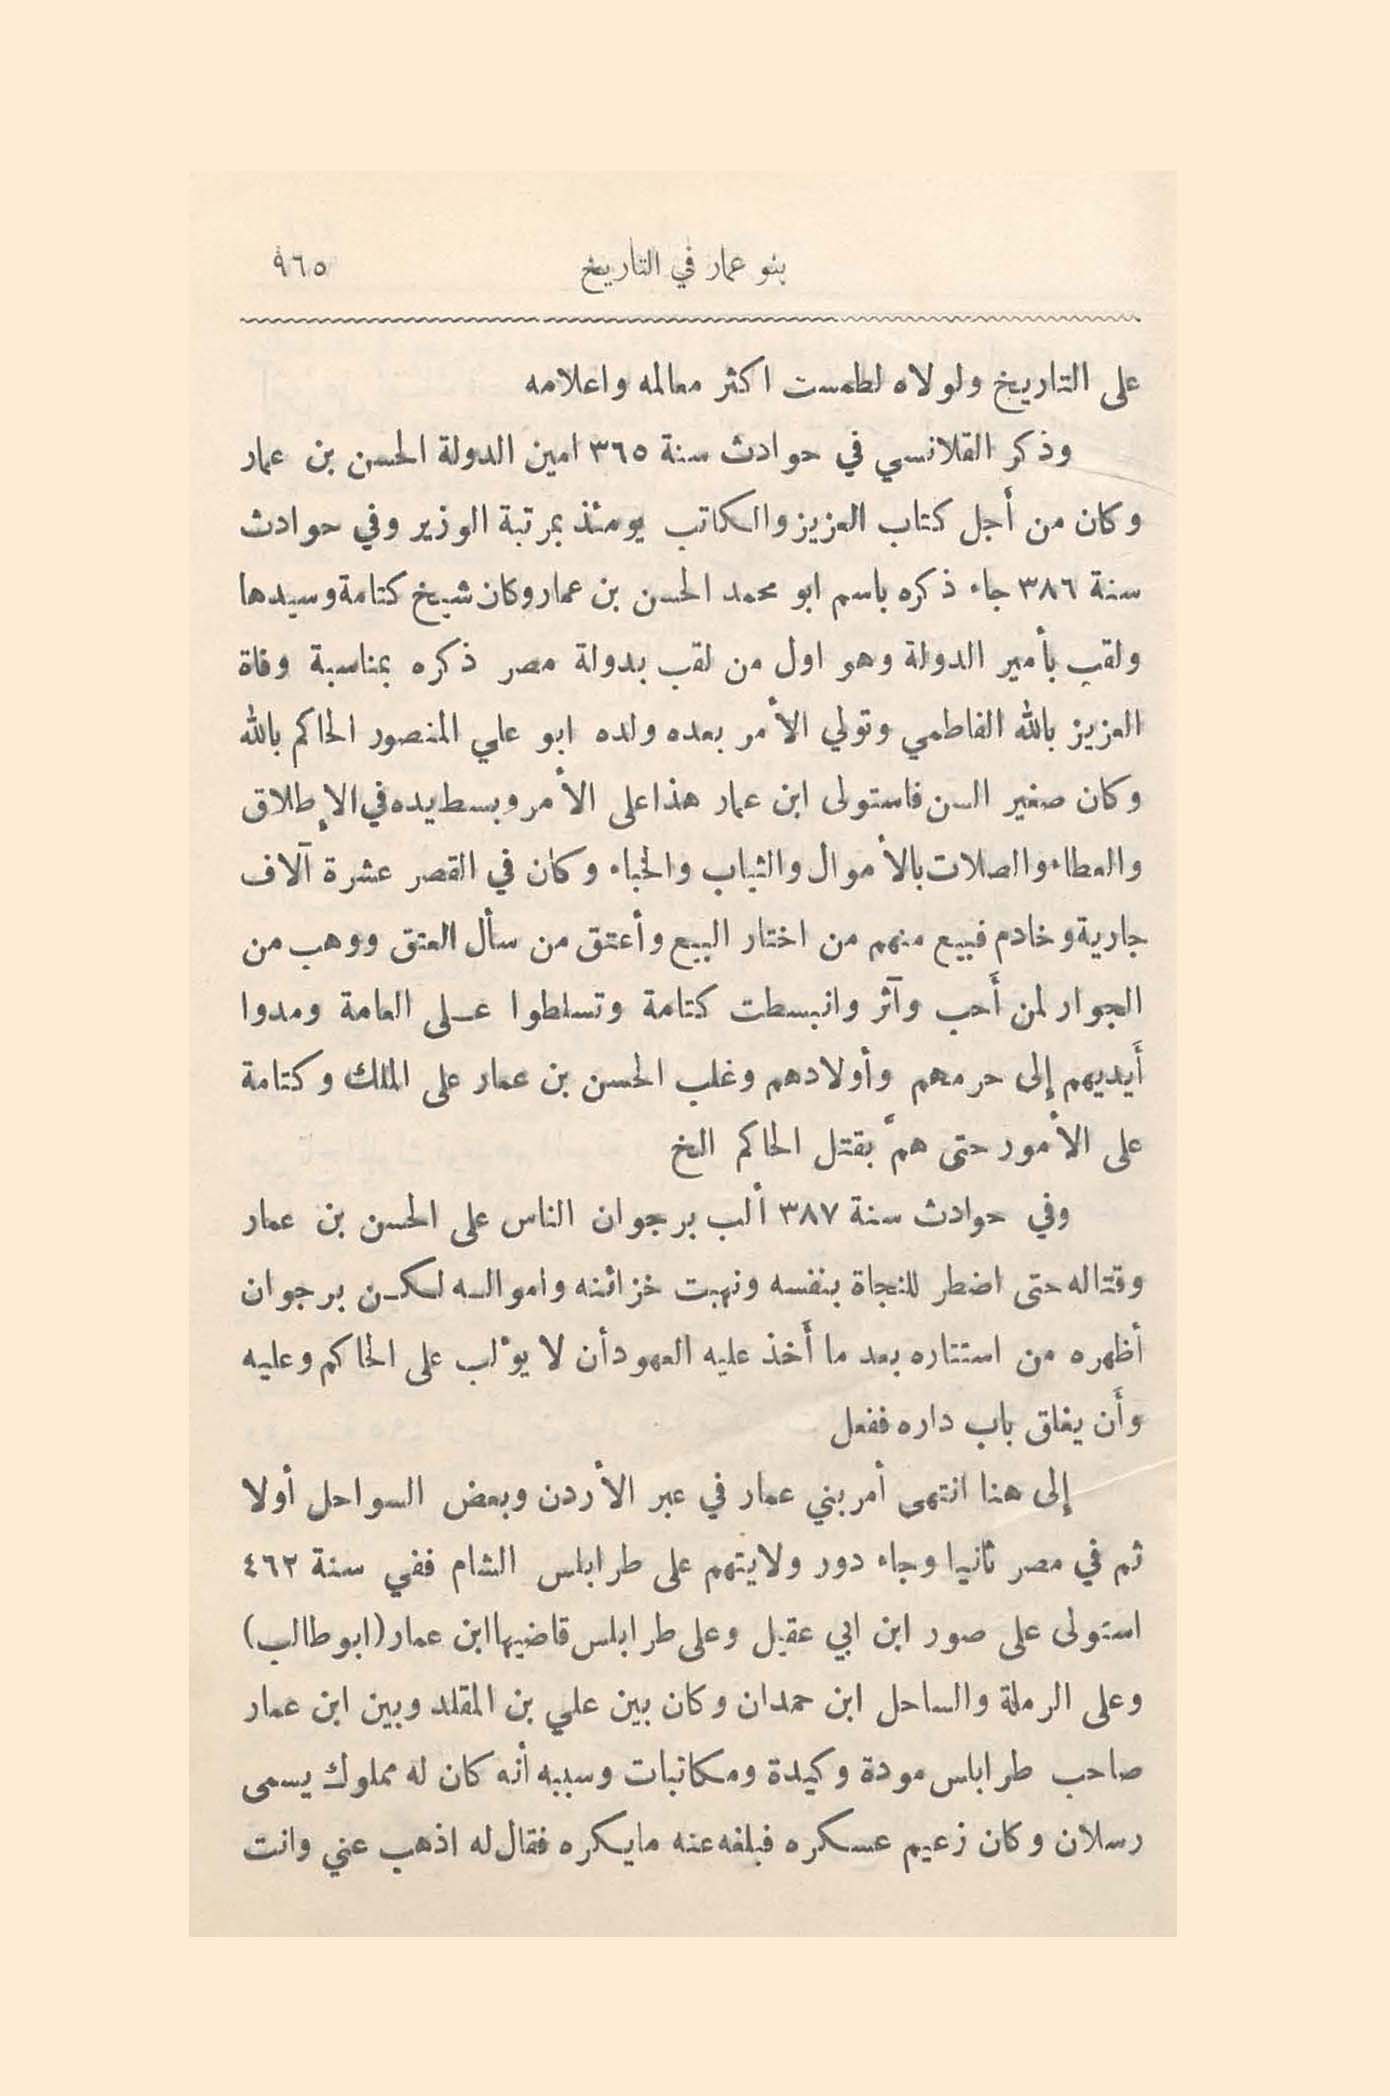 بنو عمار في التاريخ ٩٦٥
على التاريخ ولولاه لطمست اكثر معالمه واعلامه
وذكر القلانسي في حوادث سنة ٣٦٥ امين الدولة الحسن بن عمار
وكان من أَجل كتاب العزيز والكاتب يومئذ بمرتبة الوزير وفي حوادث
سنة ٣٨٦ جاء ذكره باسم ابو محمد الحسن بن عمار وكان شيخ كتامة وسيدها
ولقب بأمير الدولة وهو اول من لقب بدولة مصر ذكره بمناسبة وفاة
العزيز بالله الفاطمي وتولي الأمر بعده ولده ابو علي المنصور الحاكم بالله
وكان صغير السن فاستولى ابن عمار هذا على الأمر وبسط يده في الإطلاق
والعطاء والصلات بالأموال والثياب والخباء وكان في القصر عشرة آلاف
جارية وخادم فبيع منهم من اختار البيع وأعتق من سأل العتق ووهب من
الجوار لمن أَحب وآثر وانبسطت كتامة وتسلطوا عـلى العامة ومدوا
أَيديهم إلى حرمهم وأولادهم وغلب الحسن بن عمار على الملك وكتامة
على الأمور حتى همَّ بقتل الحاكم الخ
وفي حوادث سنة ٣٨٧ ألب برجوان الناس على الحسن بن عمار
وقتاله حتى اضطر للنجاة بنفسه ونهبت خزائنه واموالـه لـكـن برجوان
أظهره من استتاره بعد ما أَخذ عليه العهود أن لا يؤلب على الحاكم وعليه
وأَن يغلق باب داره ففعل
إلى هنا انتهى أمر بني عمار في عبر الأردن وبعض السواحل أولا
ثم في مصر ثانيا وجاء دور ولايتهم على طرابلس الشام ففي سنة ٤٦٢
استولى على صور ابن ابي عقيل وعلى طرابلس قاضيها ابن عمار (ابو طالب)
وعلى الرملة والساحل ابن حمدان وكان بين علي بن المقلد وبين ابن عمار
صاحب طرابلس مودة وكيدة ومكاتبات وسببه أنه كان له مملوك يسمى
رسلان وكان زعيم عسكره فبلغه عنه ما يكره فقال له اذهب عني وانت